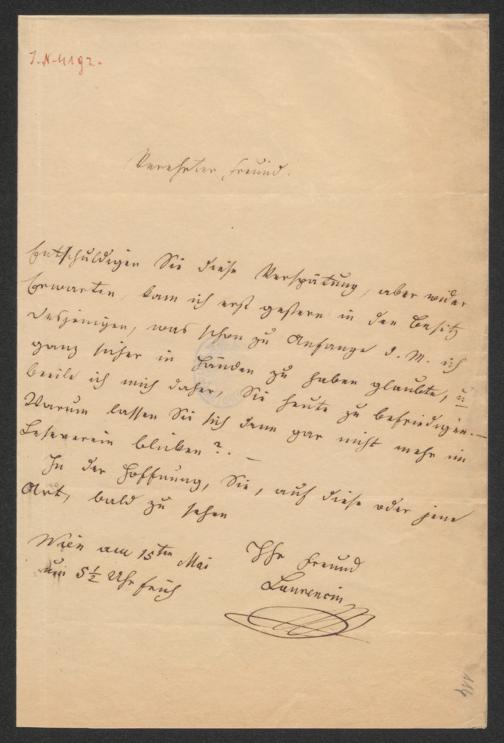 I.N. 4192.
Verehrter Freund.
Entschuldigen Sie diese Verspätung, aber wider
Erwarten, kam ich erst gestern in den Besitz
desjenigen, was schon zu Anfange d. M. ich
ganz sicher in Händen zu haben glaubte, u
beeile ich mich daher, Sie heute zu befriedigen. —
Warum lassen Sie sich denn gar nicht mehr im
Leseverein blicken? . —
In der Hoffnung, Sie, auf diese oder jene
Art, bald zu sehen
Wien am 15ten Mai
um 5½ Uhr früh
Ihr Freund
Laurencin
114